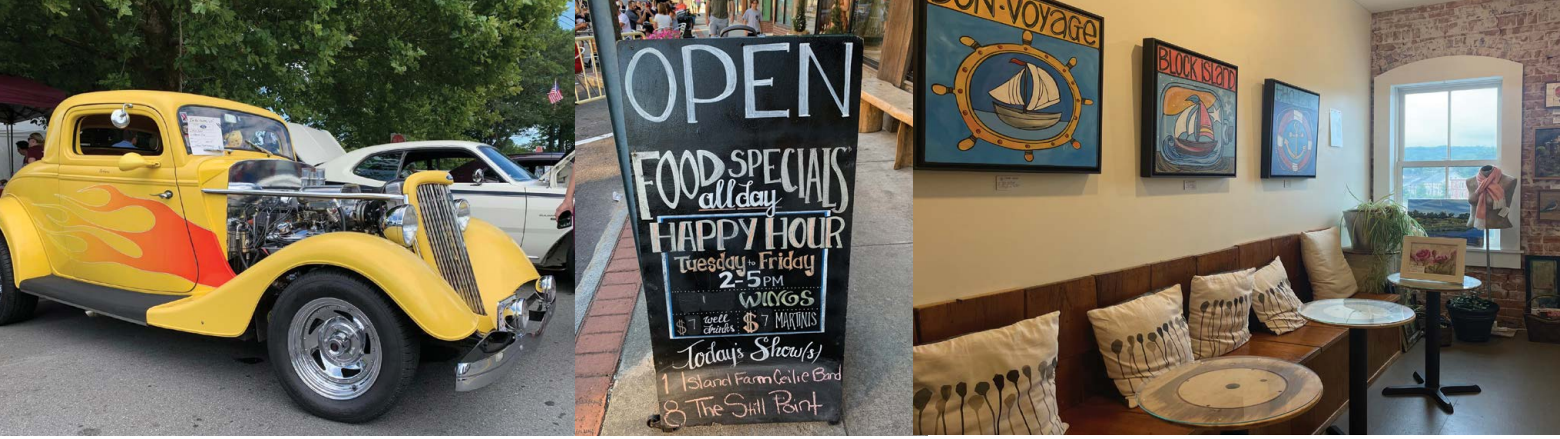 OPEN
FOOD SPECIALS
all day
HAPPY HOUR
Tuesday to Friday
2-5 PM
WINGS
$7 well drinks $7 MARTINIS
Today's Show(s)
1 Island Farm Ceilie Band
8 The Still Point
BON-VOYAGE
BLOCK ISLAND